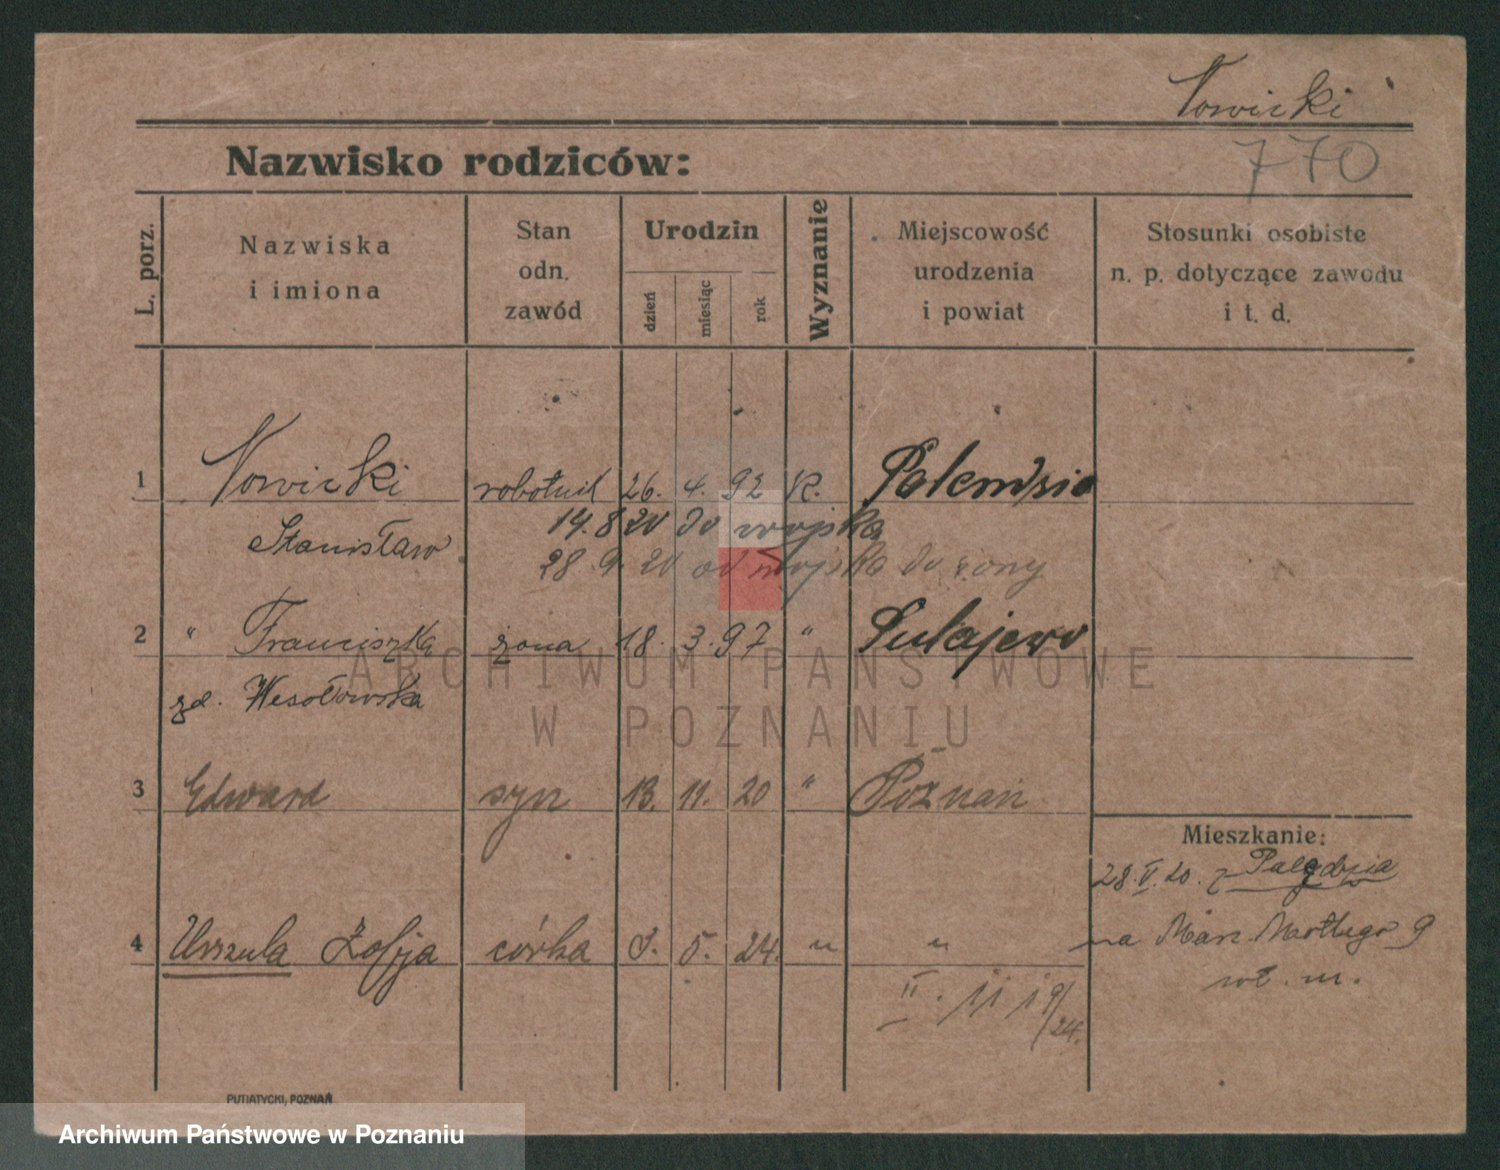 Nowicki
770
Nazwisko rodziców:
L. porz.
Nazwiska
i imiona
Stan
odn.
zawód
Urodzin
dzień
miesiąc
rok
Wyznanie
Miejscowość
urodzenia
i powiat
Stosunki osobiste
n. p. dotyczące zawodu
i t. d.
1 Nowicki robotnik 26. 4. 92 K. Palendzie
Stanisław 14.8 20 do wojska
28.9.20 od wojska do żony
2 " Franciszka żona 18. 3. 97 " Sulajewo
zd. Wesołowska
3 Edward syn 13. 11. 20 " Poznań
Mieszkanie:
28.V.20. z Palędzia
4 Urszula Zofja córka 5. 24. " "
na Mar. 9
II. 24.
ARCHIWUM PAŃSTWOWE
W POZNANIU
PUTIATYCKI, POZNAŃ
Archiwum Państwowe w Poznaniu